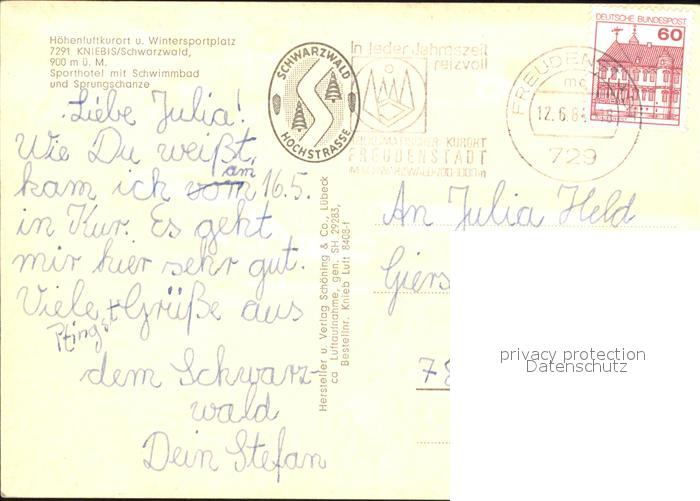 Höhenluftkurort u. Wintersportplatz
7291 KNIEBIS/Schwarzwald,
900 m ü. M.
Sporthotel mit Schwimmbad
und Sprungschanze
Liebe Julia!
Wie Du weißt,
kam ich vom am 16.5.
in Kur. Es geht
mir hier sehr gut.
Viele Pfingst Grüße aus
dem Schwarz-
wald
Dein Stefan
SCHWARZWALD
HOCHSTRASSE
In jeder Jahreszeit
reizvoll
KURORT
FREUDENSTADT
FREUDEN
12.6.8
729
DEUTSCHE BUNDESPOST
60
Hersteller u. Verlag Schöning & Co., Lübeck
ca Luftaufnahme, gen. SH 29283,
Bestellnr. Knieb Luft 8408-f
An Julia Held
Giers
78
privacy protection
Datenschutz